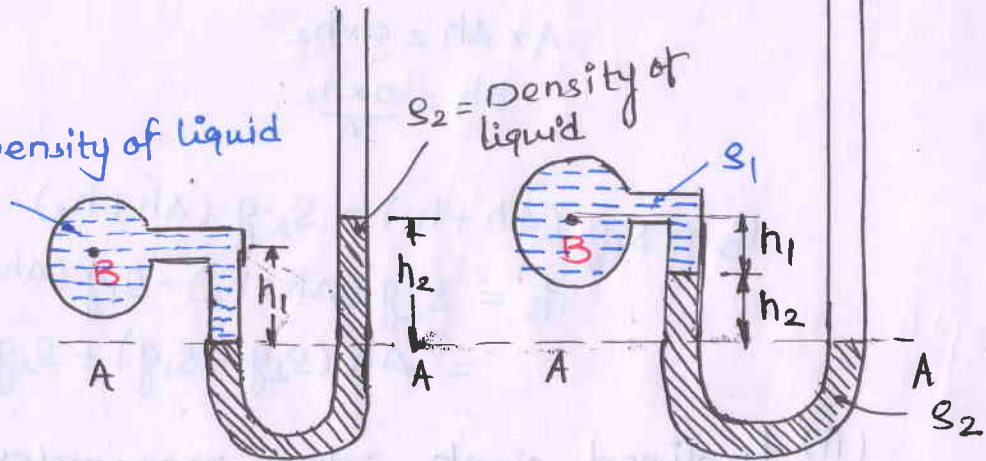 ensity of liquid
S₂ = Density of
liquid
S₁
B
h₁
h₂
A
A
B
h₁
h₂
A
A
S₂